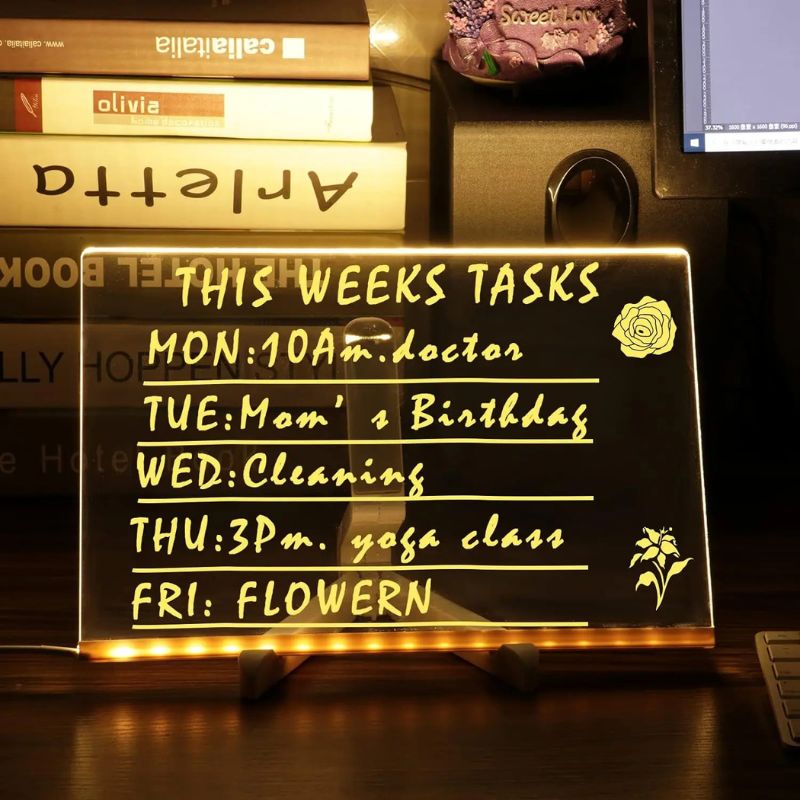 www.caliaitalia
caliaitalia
olivia
home decoration
Arletta
Sweet Love
THE HOTEL BOOK
LLY HOPPEN STY
e Hotel Book
37.32%
THIS WEEKS TASKS
MON:10Am.doctor
TUE:Mom's Birthdag
WED:Cleaning
THU:3Pm. yoga class
FRI: FLOWERN